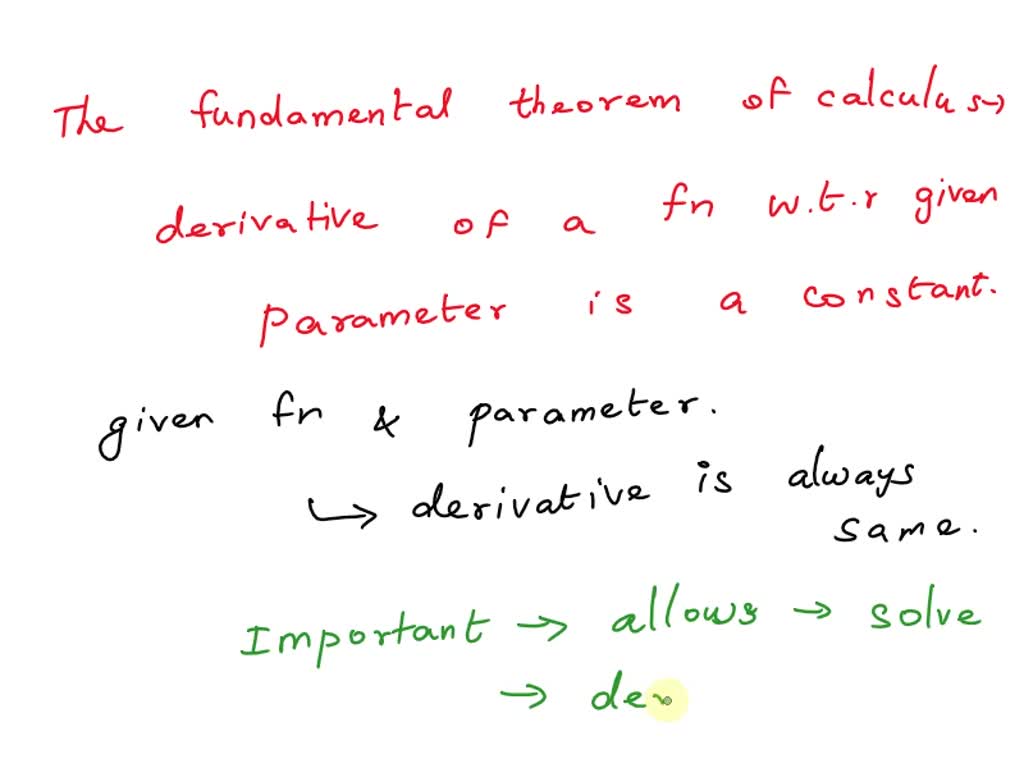 The fundamental theorem of calculus →
derivative of a fn w.t.r given
parameter is a constant.
given fn & parameter.
↳ derivative is always
same.
Important → allows → solve
→ de